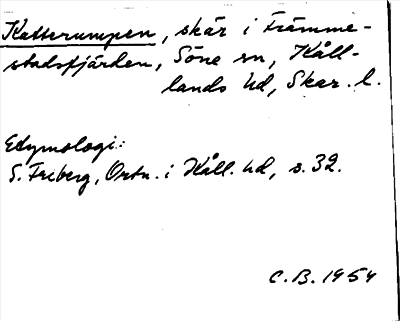 Katterumpen, skär i Främme-
stadsfjärden, Söne sn, Kåll-
lands hd, Skar. l.
Etymologi:
S. Friberg, Ortn. i Kåll. hd, s. 32.
C.B. 1954